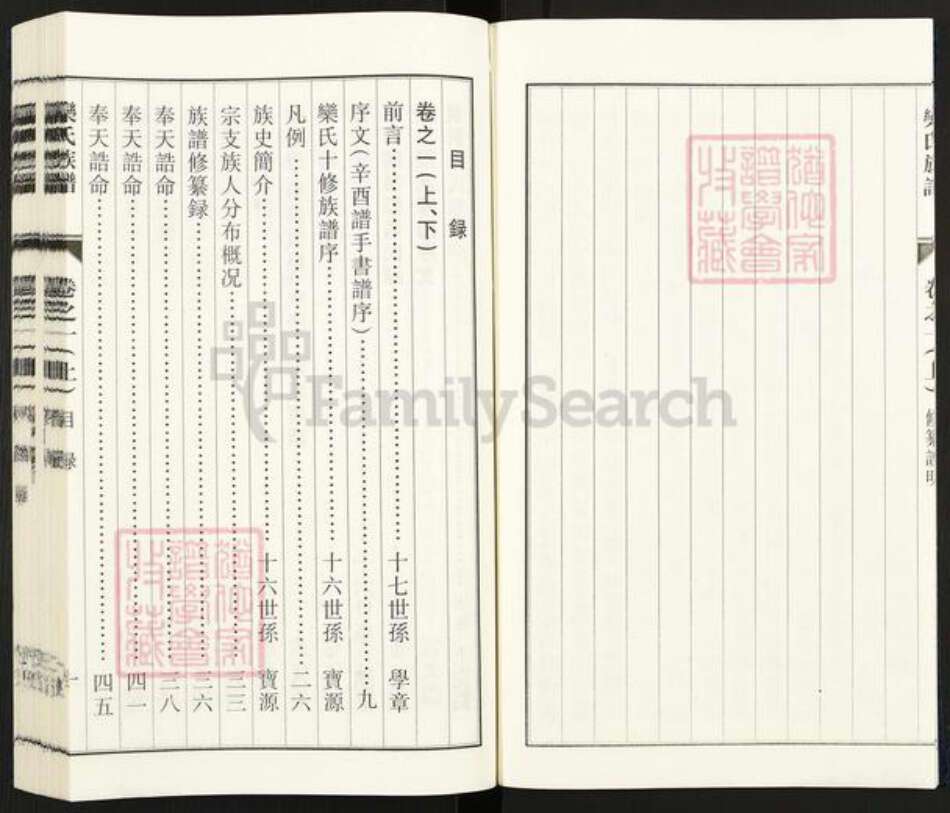 目録
卷之一（上、下）
前言………十七世孫 學章
序文（辛酉譜手書譜序）………九
欒氏十修族譜序………十六世孫 寶源
凡例………二六
族史簡介………十六世孫 寶源
宗支族人分布概况………三三
族譜修纂録………三六
奉天誥命………三八
奉天誥命………四一
奉天誥命………四五
欒氏族譜
卷之一（上）目録
一
FamilySearch